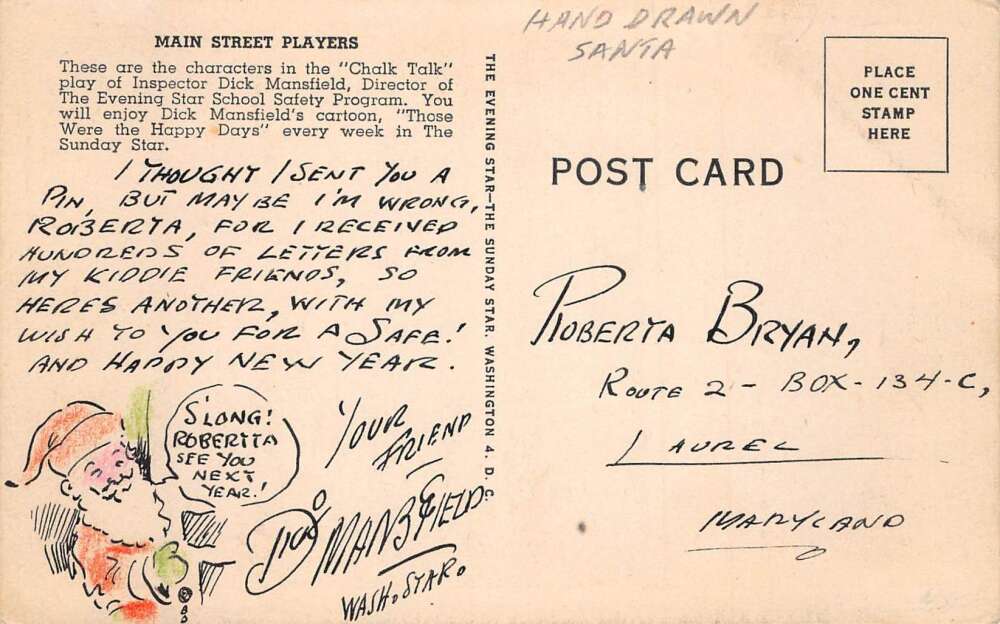 HAND DRAWN
SANTA
MAIN STREET PLAYERS
These are the characters in the "Chalk Talk"
play of Inspector Dick Mansfield, Director of
The Evening Star School Safety Program. You
will enjoy Dick Mansfield's cartoon, "Those
Were the Happy Days" every week in The
Sunday Star.
I THOUGHT I SENT YOU A
PIN, BUT MAY BE I'M WRONG,
ROBERTA, FOR I RECEIVED
HUNDREDS OF LETTERS FROM
MY KIDDIE FRIENDS, SO
HERES ANOTHER, WITH MY
WISH TO YOU FOR A SAFE!
AND HAPPY NEW YEAR.
S'LONG!
ROBERTTA
SEE YOU
NEXT
YEAR!
YOUR
FRIEND
DICK
MANSFIELD
WASH. STAR.
THE EVENING STAR—THE SUNDAY STAR. WASHINGTON 4. D. C.
PLACE
ONE CENT
STAMP
HERE
POST CARD
ROBERTA BRYAN,
ROUTE 2 - BOX-134-C,
LAUREL
MARYLAND